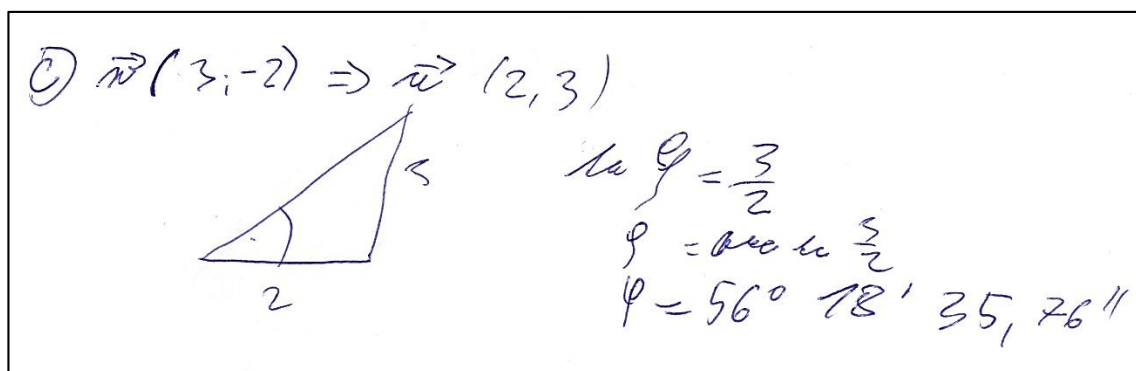 c) n⃗ (3;-2) ⇒ u⃗ (2,3)
3
2
tg φ = 3/2
φ = arc tg 3/2
φ = 56° 18' 35,76"